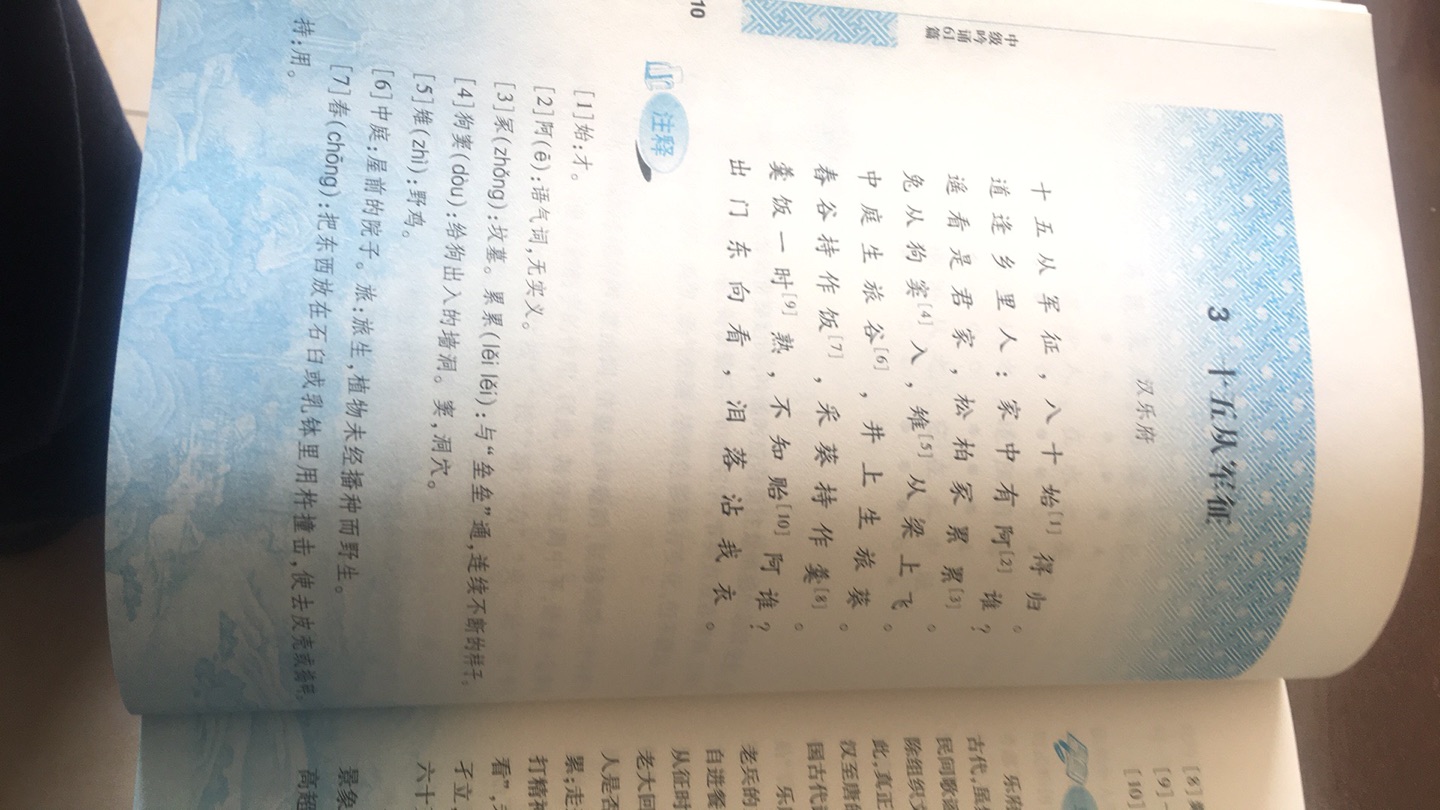 中级吟诵61篇
3 十五从军征
汉乐府
十五从军征，八十始[1]得归。
道逢乡里人：家中有阿[2]谁？
遥看是君家，松柏冢累累[3]。
兔从狗窦[4]入，雉[5]从梁上飞。
中庭生旅谷[6]，井上生旅葵。
舂谷持作饭[7]，采葵持作羹[8]。
羹饭一时[9]熟，不知贻[10]阿谁？
出门东向看，泪落沾我衣。
注释
[1]始:才。
[2]阿(ē):语气词,无实义。
[3]冢(zhǒng):坟墓。累累(lěi lěi):与“垒垒”通,连续不断的样子。
[4]狗窦(dòu):给狗出入的墙洞。窦,洞穴。
[5]雉(zhì):野鸡。
[6]中庭:屋前的院子。旅:旅生,植物未经播种而野生。
[7]舂(chōng):把东西放在石臼或乳钵里用杵撞击,使去皮壳或捣碎。
持:用。
10
[8]
[9]
[10]
乐府
古代,虽
民间歌谣
除组织文
此,真正
汉至唐的
国古代
乐府
老兵的
自进餐
从征时
老大回
人是否
累;走
打精神
看”,
子立,
六十
景象
高超